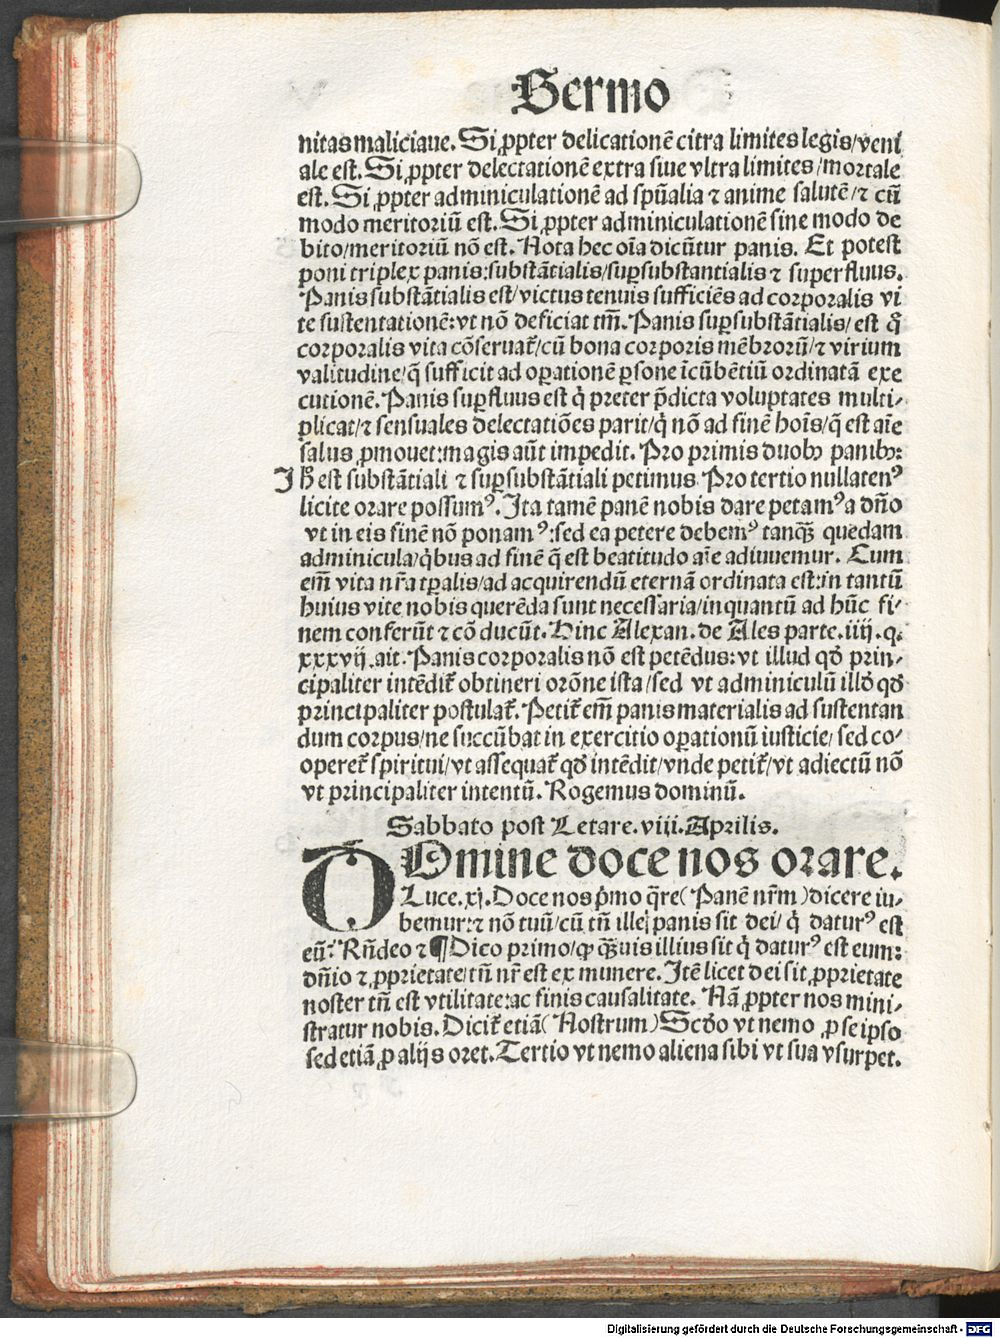 Sermo
nitas maliciaue. Si ꝓpter delicationē citra limites legis/veni
ale est. Si ꝓpter delectationē extra siue vltra limites/mortale
est. Si ꝓpter adminiculationē ad spūalia ⁊ anime salutē/⁊ cū
modo meritoriū est. Si ꝓpter adminiculationē sine modo de
bito/meritoriū nō est. Nota hec oīa dicūtur panis. Et potest
poni triplex panis:substātialis/suꝑsubstantialis ⁊ superfluus.
Panis substātialis est/victus tenuis sufficiēs ad corporalis vi
te sustentationē:vt nō deficiat tm̄. Panis suꝑsubstātialis/est q̄
corporalis vita cōseruat᷑/cū bona corporis mēbrorū/⁊ virium
valitudine/q̄ sufficit ad oꝑationē ꝑsone īcūbētiū ordinatā exe
cutionē. Panis suꝑfluus est q̇ preter p̄dicta voluptates multi⸗
plicat/⁊ sensuales delectatiōes parit/q̇ nō ad finē hoīs/q̄ est aīe
salus ꝓmouet:magis aūt impedit. Pro primis duobꝫ panibꝫ:
Id est substātiali ⁊ suꝑsubstātiali petimus Pro tertio nullatenꝰ
licite orare possumꝰ. Ita tamē panē nobis dare petamꝰ a dn̄o
vt in eis finē nō ponamꝰ:sed ea petere debemꝰ tanqꝫ̄ quedam
adminicula/q̇bus ad finē q̄ est beatitudo aīe adiuuemur. Cum
em̄ vita nr̄a tꝑalis/ad acquirendū eternā ordinata est:in tantū
huius vite nobis querēda sunt necessaria/inquantū ad hūc fi⸗
nem conferūt ⁊ cōducūt. Hinc Alexan. de Ales parte.iiij.q.
xxxvij.ait. Panis corporalis nō est petēdus:vt illud qd̓ prin⸗
cipaliter intēdit᷑ obtineri orōne ista/sed vt adminiculū illd̓ qd̓
principaliter postulat᷑. Petit᷑ em̄ panis materialis ad sustentan
dum corpus/ne succūbat in exercitio oꝑationū iusticie/sed co⸗
operet᷑ spiritui/vt assequat᷑ qd̓ intēdit/vnde petit᷑/vt adiectū nō
vt principaliter intentū. Rogemus dominū.
Sabbato post Letare.viii.Aprilis.
DOmine doce nos orare.
Luce.xj. Doce nos p̓mo q̄re(Panē nr̄m)dicere iu⸗
bemur:⁊ nō tuū/cū tn̄ ille panis sit dei/q̇ daturꝰ est
eū: Rn̄deo ⁊ ¶ Dico primo/ꝙ qꝫ̄uis illius sit q̇ daturꝰ est eum:
dn̄io ⁊ ꝓprietate/tn̄ nr̄ est ex munere. Itē licet dei sit ꝓprietate
noster tn̄ est vtilitate:ac finis causalitate. Nā ꝓpter nos mini⸗
stratur nobis. Dicit᷑ etiā(Nostrum)Scd̓o vt nemo ꝓ se ipso
sed etiā ꝓ alijs oret. Tertio vt nemo aliena sibi vt sua vsurpet.
Digitalisierung gefördert durch die Deutsche Forschungsgemeinschaft - DFG